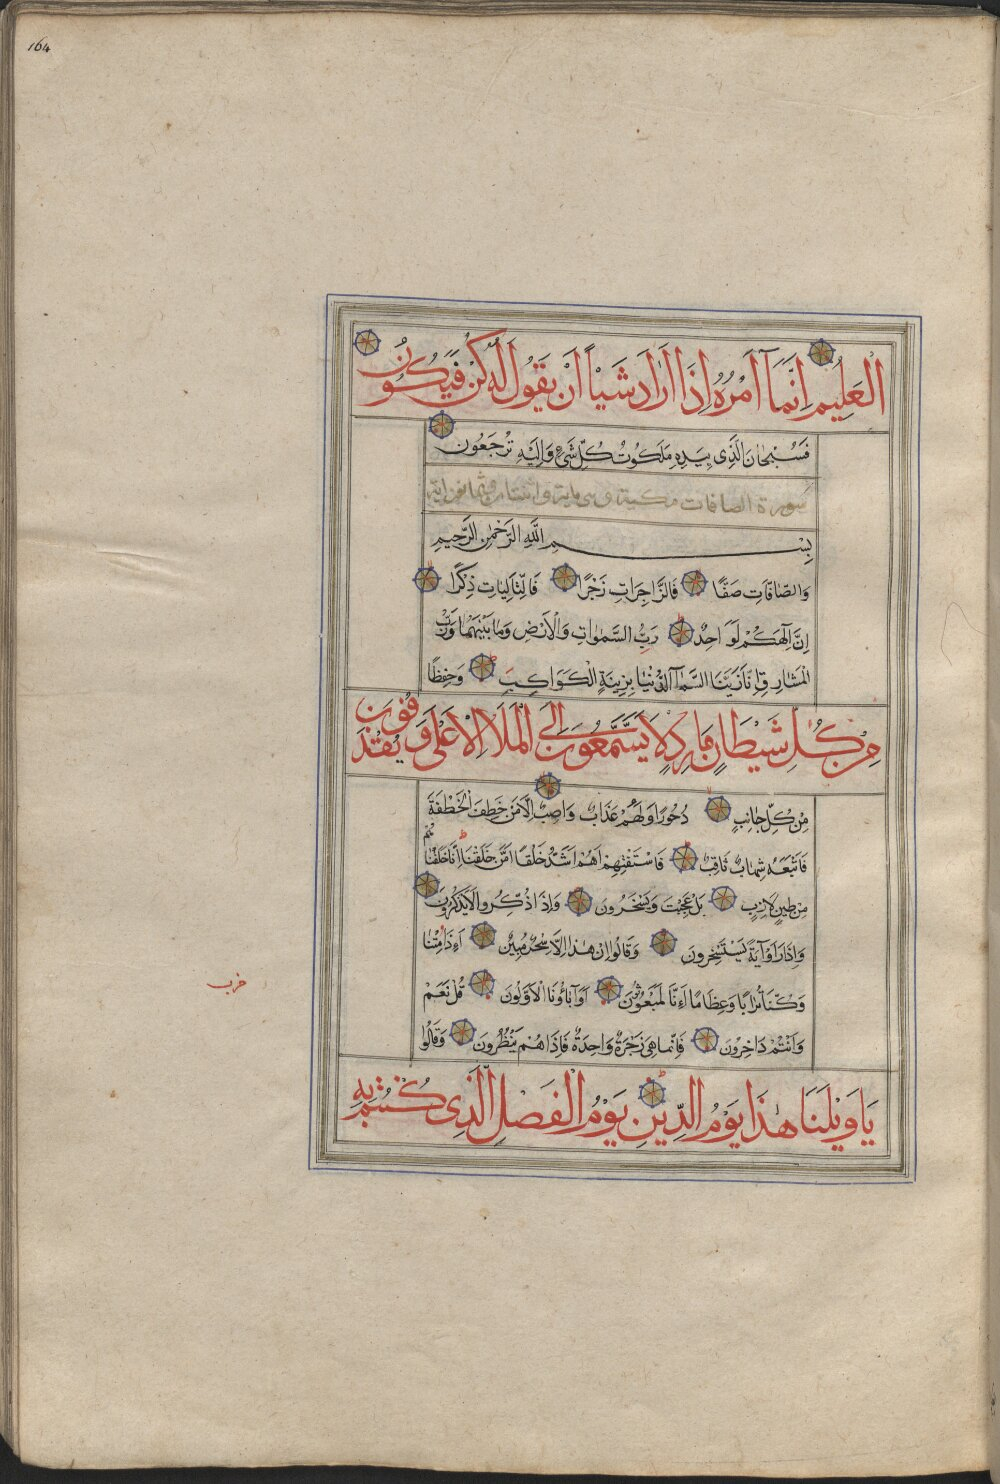 164
الْعَلِيمُ إِنَّمَآ أَمْرُهُ إِذَا أَرَادَ شَيْئًا أَنْ يَقُولَ لَهُ كُنْ فَيَكُونُ
فَسُبْحَانَ الَّذِي بِيَدِهِ مَلَكُوتُ كُلِّ شَيْءٍ وَإِلَيْهِ تُرْجَعُونَ
سورة الصافات مكية وهي مایة واثنتان وثمانون اية
بِسْمِ اللَّهِ الرَّحْمٰنِ الرَّحِيمِ
وَالصَّافَّاتِ صَفًّا فَالزَّاجِرَاتِ زَجْرًا فَالتَّالِيَاتِ ذِكْرًا
إِنَّ إِلٰهَكُمْ لَوَاحِدٌ رَبُّ السَّمٰوَاتِ وَالْأَرْضِ وَمَا بَيْنَهُمَا وَرَبُّ
الْمَشَارِقِ إِنَّا زَيَّنَّا السَّمَآءَ الدُّنْيَا بِزِينَةٍ الْكَوَاكِبِ وَحِفْظًا
مِنْ كُلِّ شَيْطَانٍ مَارِدٍ لَا يَسَّمَّعُونَ إِلَى الْمَلَإِ الْأَعْلَى وَيُقْذَفُونَ
مِنْ كُلِّ جَانِبٍ دُحُورًا وَلَهُمْ عَذَابٌ وَاصِبٌ إِلَّا مَنْ خَطِفَ الْخَطْفَةَ
فَأَتْبَعَهُ شِهَابٌ ثَاقِبٌ فَاسْتَفْتِهِمْ أَهُمْ أَشَدُّ خَلْقًا أَمْ مَنْ خَلَقْنَا إِنَّا خَلَقْنَاهُمْ
مِنْ طِينٍ لَازِبٍ بَلْ عَجِبْتَ وَيَسْخَرُونَ وَإِذَا ذُكِّرُوا لَا يَذْكُرُونَ
وَإِذَا رَأَوْا آيَةً يَسْتَسْخِرُونَ وَقَالُوا إِنْ هٰذَا إِلَّا سِحْرٌ مُبِينٌ أَءِذَا مِتْنَا
وَكُنَّا تُرَابًا وَعِظَامًا أَءِنَّا لَمَبْعُوثُونَ أَوَآبَاؤُنَا الْأَوَّلُونَ قُلْ نَعَمْ
وَأَنْتُمْ دَاخِرُونَ فَإِنَّمَا هِيَ زَجْرَةٌ وَاحِدَةٌ فَإِذَا هُمْ يَنْظُرُونَ وَقَالُوا
يَا وَيْلَنَا هٰذَا يَوْمُ الدِّينِ يَوْمُ الْفَصْلِ الَّذِي كُنْتُمْ بِهِ